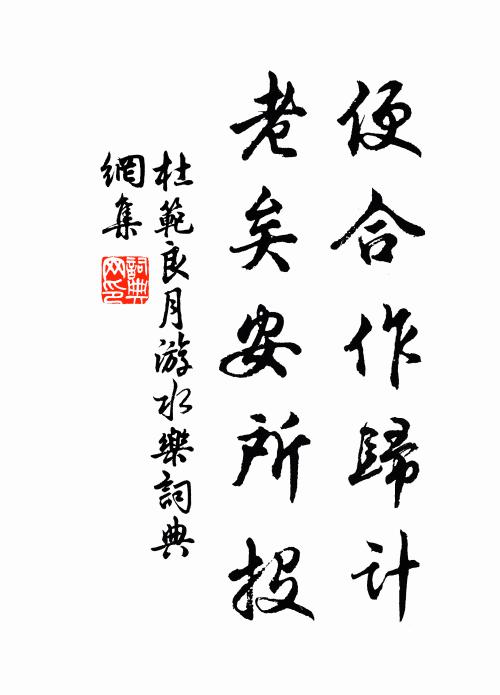 便合作歸計
老矣安所投
杜範良月游水樂詞典
網集
詞典
网印